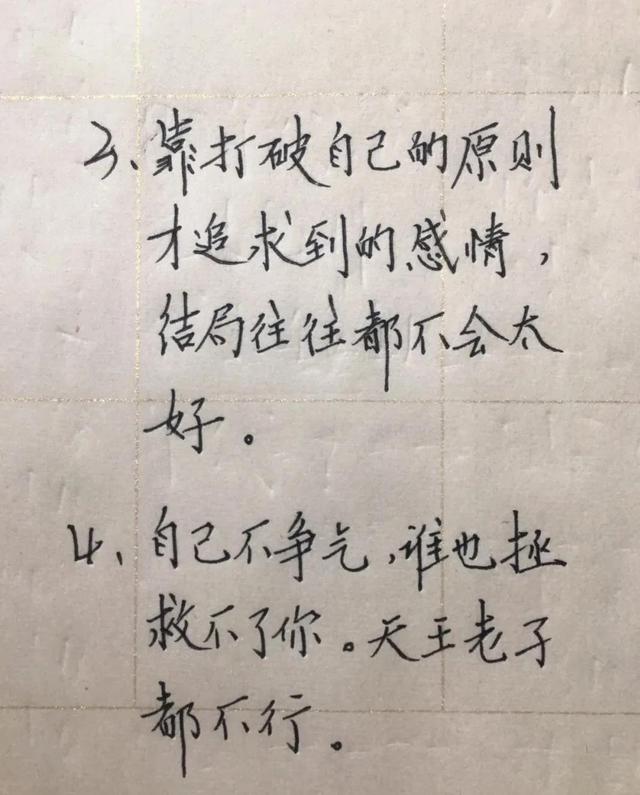 3、靠打破自己的原则
才追求到的感情，
结局往往都不会太
好。
4、自己不争气，谁也拯
救不了你。天王老子
都不行。